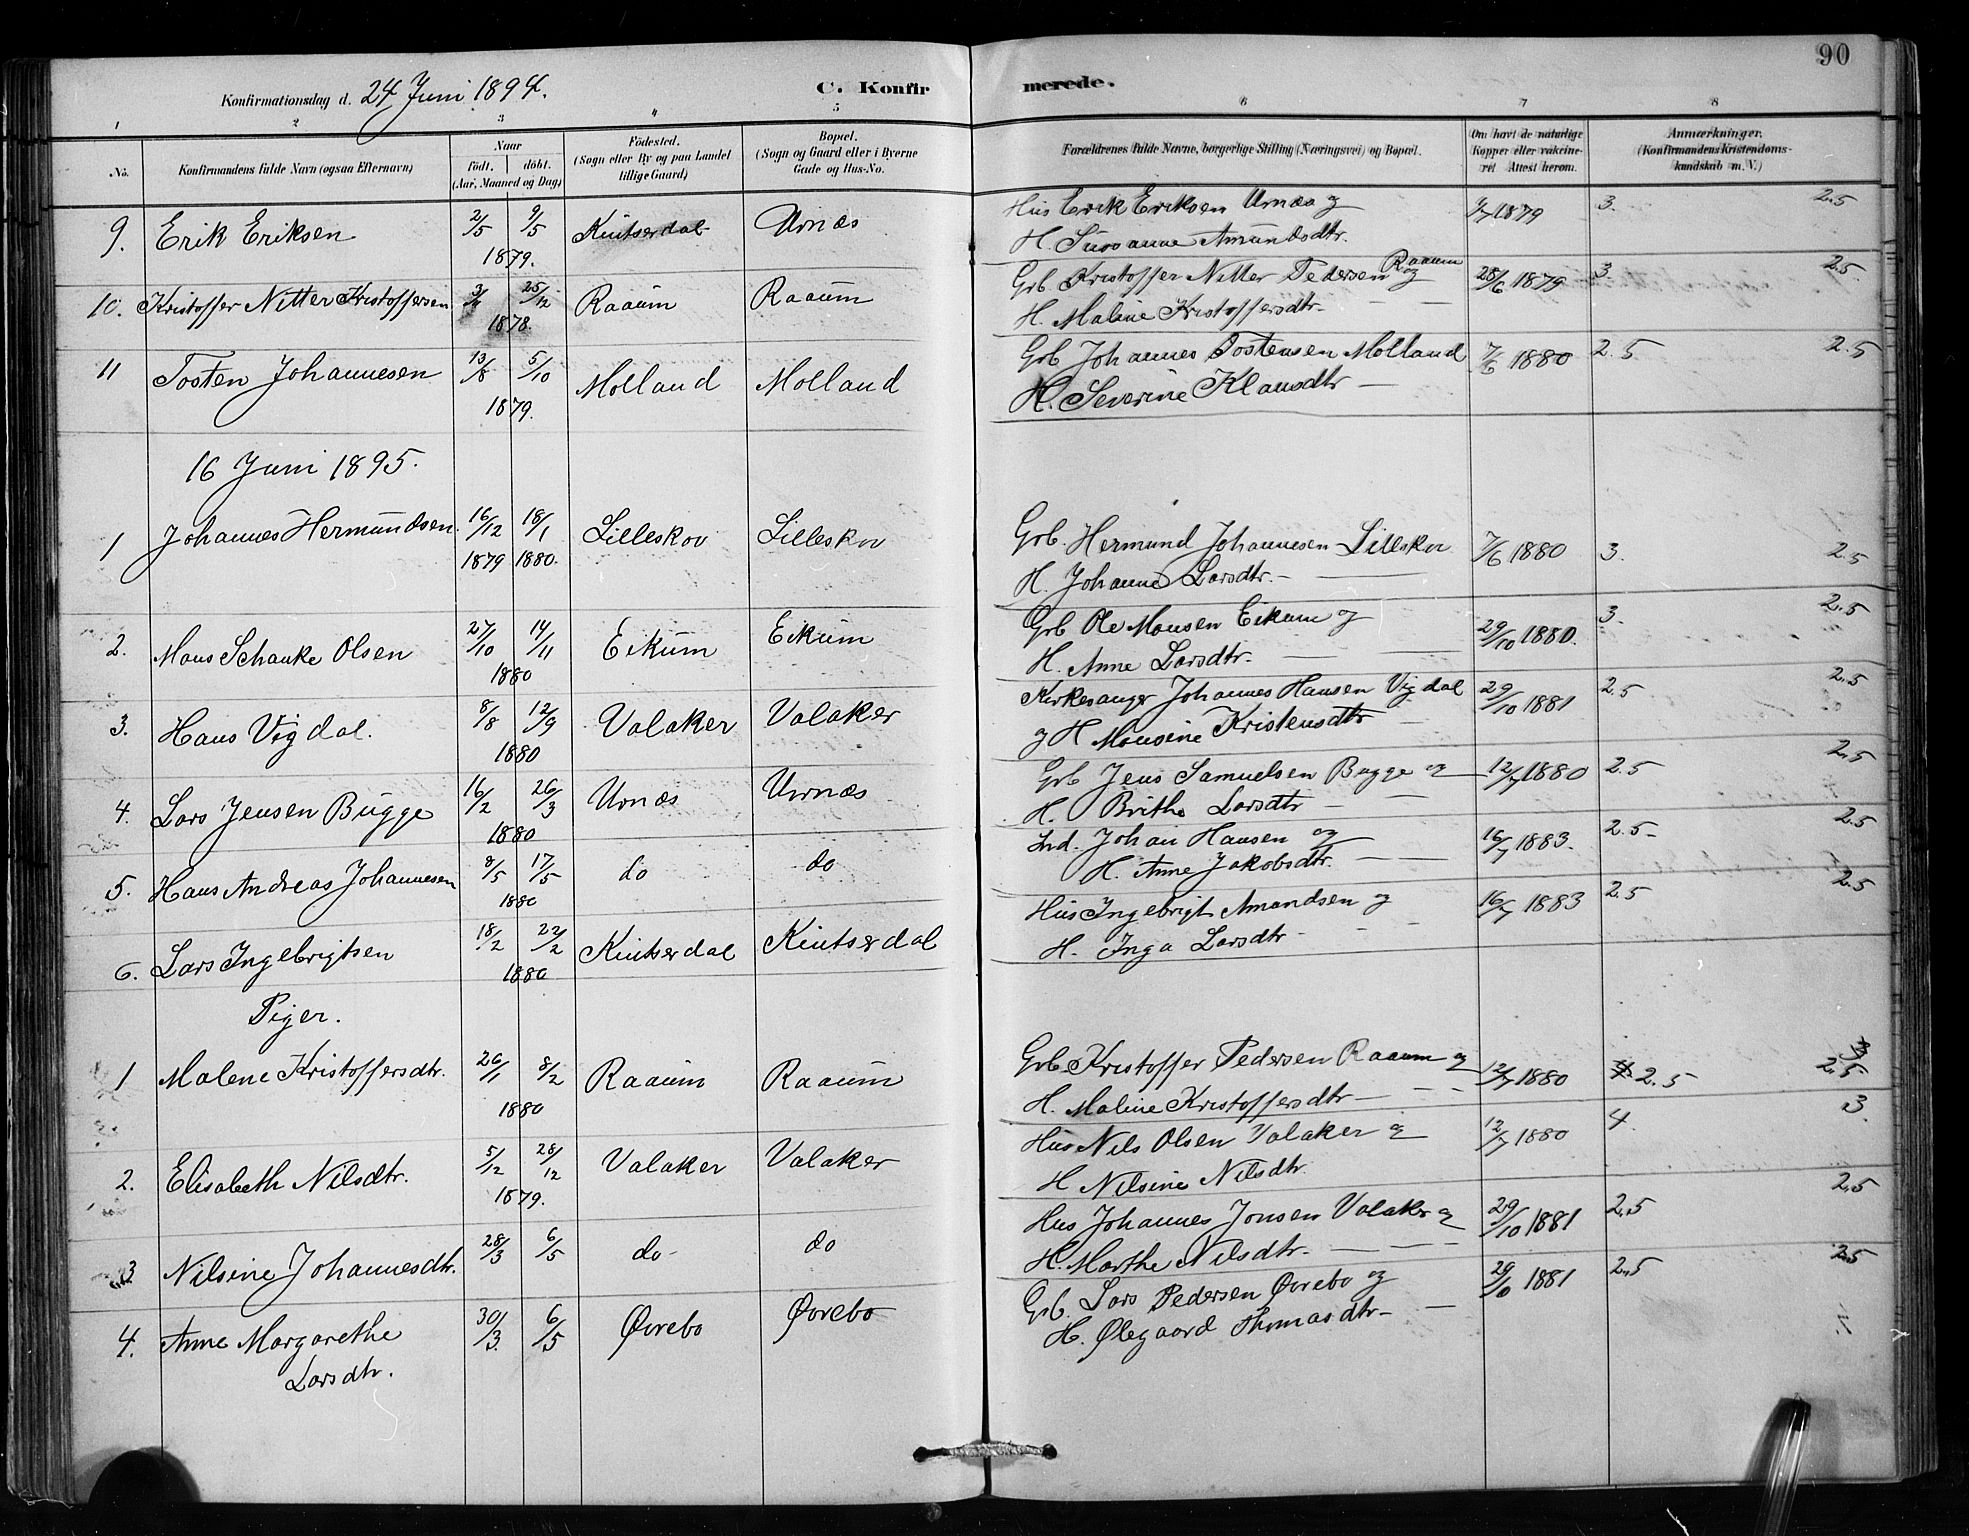 90
Konfirmationsdag d. 24 Juni 1894. C. Konfirmerede.
1 2 3 4 5 6 7 8
No. Konfirmandens fulde Navn (ogsaa Efternavn) Naar födt. döbt. (Aar, Maaned og Dag) Födested. (Sogn eller By og paa Landet tillige Gaard) Bopæl. (Sogn og Gaard eller i Byerne Gade og Hus-No. Forældrenes fulde Navne, borgerlige Stilling (Næringsvei) og Bopæl. Om havt de naturlige Kopper eller vakcineret Attest herom. Anmærkninger. (Konfirmandens Kristendomskundskab m. V.)
9. Erik Eriksen 2/5 9/5 1879. Kintserdal Urnæs Hus Erik Eriksen Urnæs og 9/7 1879 3. 2.5
H. Susanne Amundsdtr.
10. Kristoffer Nitter Kristoffersen 25/12 1878. Raaum Raaum Grb Kristoffer Nitter Pedersen Raaum og 28/6 1879 3. 2.5
H. Maline Kristoffersdtr.
11 Tosten Johannesen 13/8 5/10 1879. Molland Molland Grb Johannes Tostensen Molland 7/6 1880 2.5 2.5
H. Severine Klausdtr
16 Juni 1895.
1 Johannes Hermundsen. 16/12 1879 18/1 1880. Lilleskov Lilleskov Grb. Hermund Johannesen Lilleskov 7/6 1880 3. 2.5
H. Johanne Larsdtr.
2. Mons Schanke Olsen 27/10 14/11 1880 Eikum Eikum Grb Ole Monsen Eikum og 29/10 1880. 3. 2.5
H. Anne Larsdtr.
3. Hans Vigdal. 8/8 12/9 1880 Valaker Valaker Kirkesanger Johannes Hansen Vigdal 29/10 1881 2.5 2.5
og H Monsine Kristensdtr
4. Lars Jensen Bugge 16/2 26/3 1880 Urnæs Urnæs Grb Jens Samuelsen Bugge og 12/7 1880 2.5 2.5
H. Brithe Larsdtr
5. Hans Andreas Johannesen 8/5 17/5 1880 do do Ind. Johan Hansen og 16/7 1883. 2.5 2.5
H. Anne Jakobsdtr.
6. Lars Ingebrigtsen 18/2 22/2 1880 Kintserdal Kintserdal Hus Ingebrigt Amundsen og 16/7 1883 2.5 2.5
H. Inga Larsdtr
Piger.
1 Malene Kristoffersdtr. 26/1 8/2 1880 Raaum Raaum Grb Kristoffer Pedersen Raaum og 12/7 1880 2.5 2.5
H. Maline Kristoffersdtr
2. Elisabeth Nilsdtr. 5/12 28/12 1879. Valaker Valaker Hus Nils Olsen Valaker og 12/7 1880 4. 3.
H Nilsine Nilsdtr.
3 Nilsine Johannesdtr. 28/3 6/5 do do Hus Johannes Jonsen Valaker og 29/10 1881 2.5 2.5
H. Marthe Nilsdtr.
4. Anne Margarethe 30/3. 6/5 Øvrebo Øvrebo Grb. Lars Pedersen Øvrebo og 29/10 1881 2.5 2.5
Larsdtr. H. Ølegaard Thomasdtr